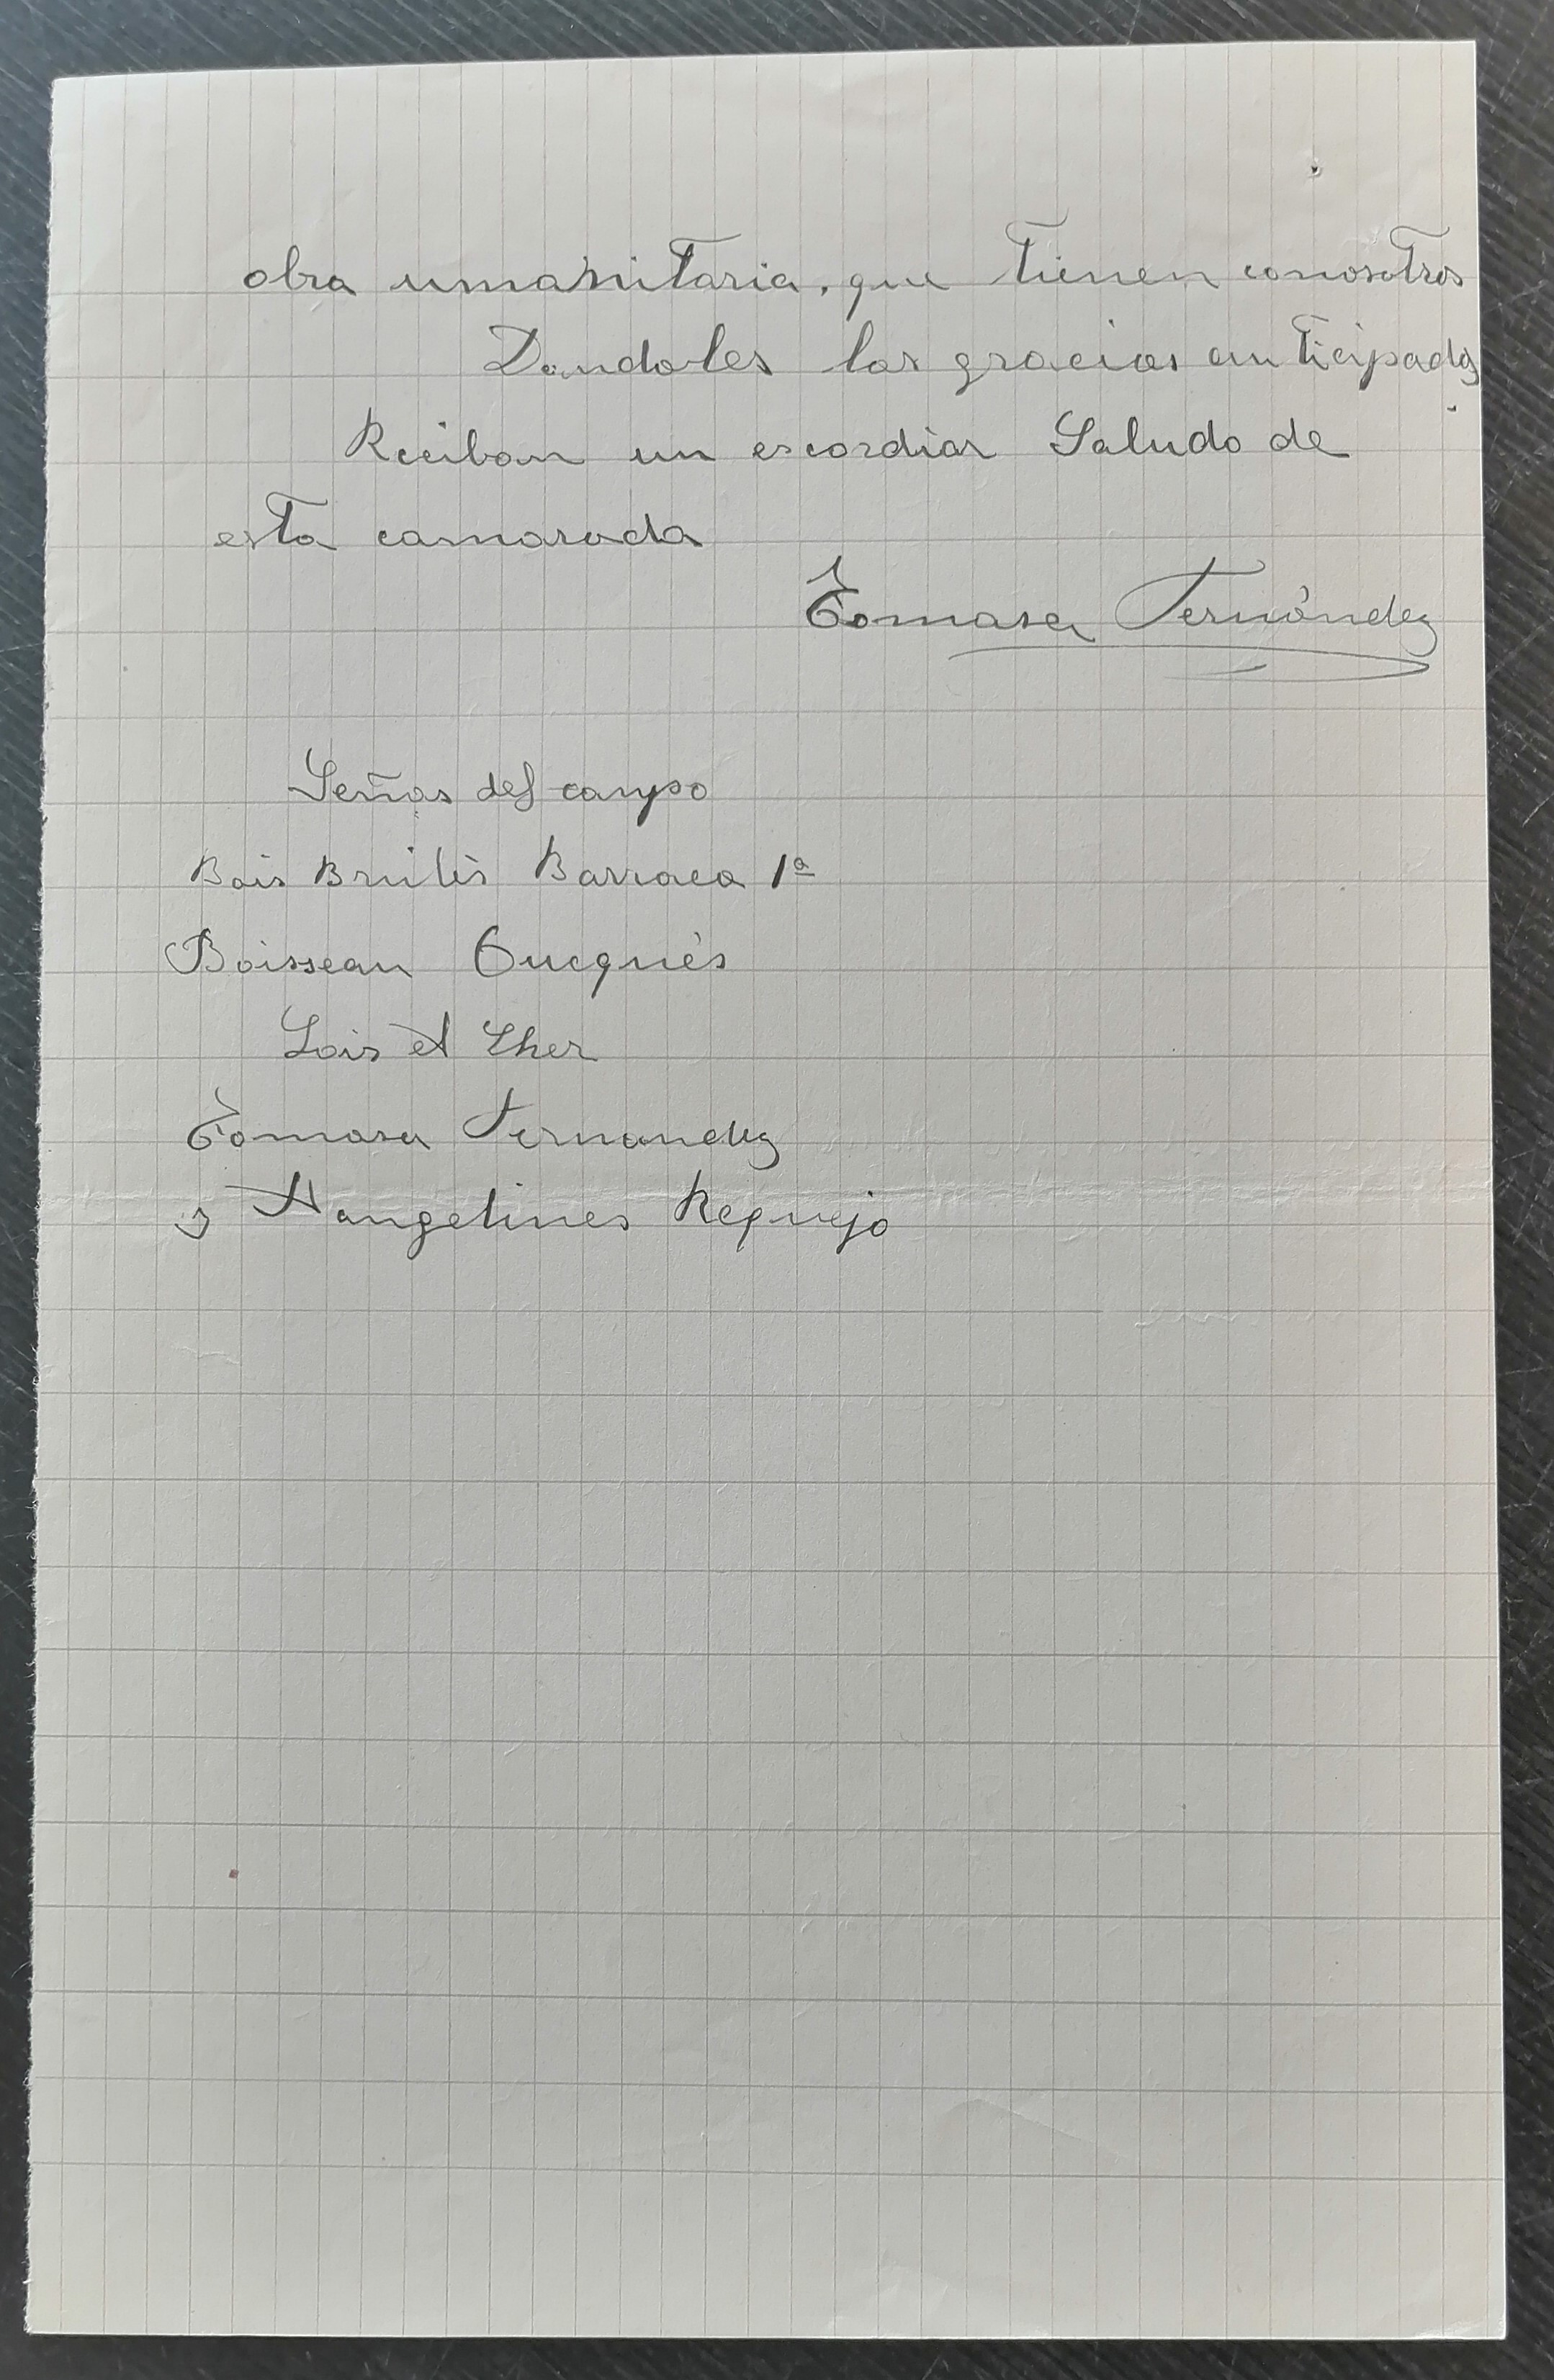 obra umanitaria, que tienen conosotros
Dandoles las gracias anticipadas
Reciban un escordiar Saludo de
esta camarada
Tomasa Fernández
Señas del campo
Bois Brulès Barraca 1ª
Boisseau Cucquès
Lois et Cher
Tomasa Fernandez
y Hangelines Requejo